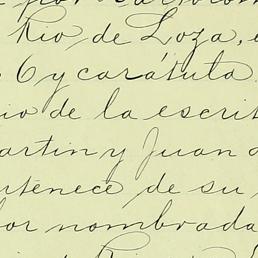 Rio de Loza,
6 y carátula
de la escrit
artin y Juan
rtenece de su
or nombrada